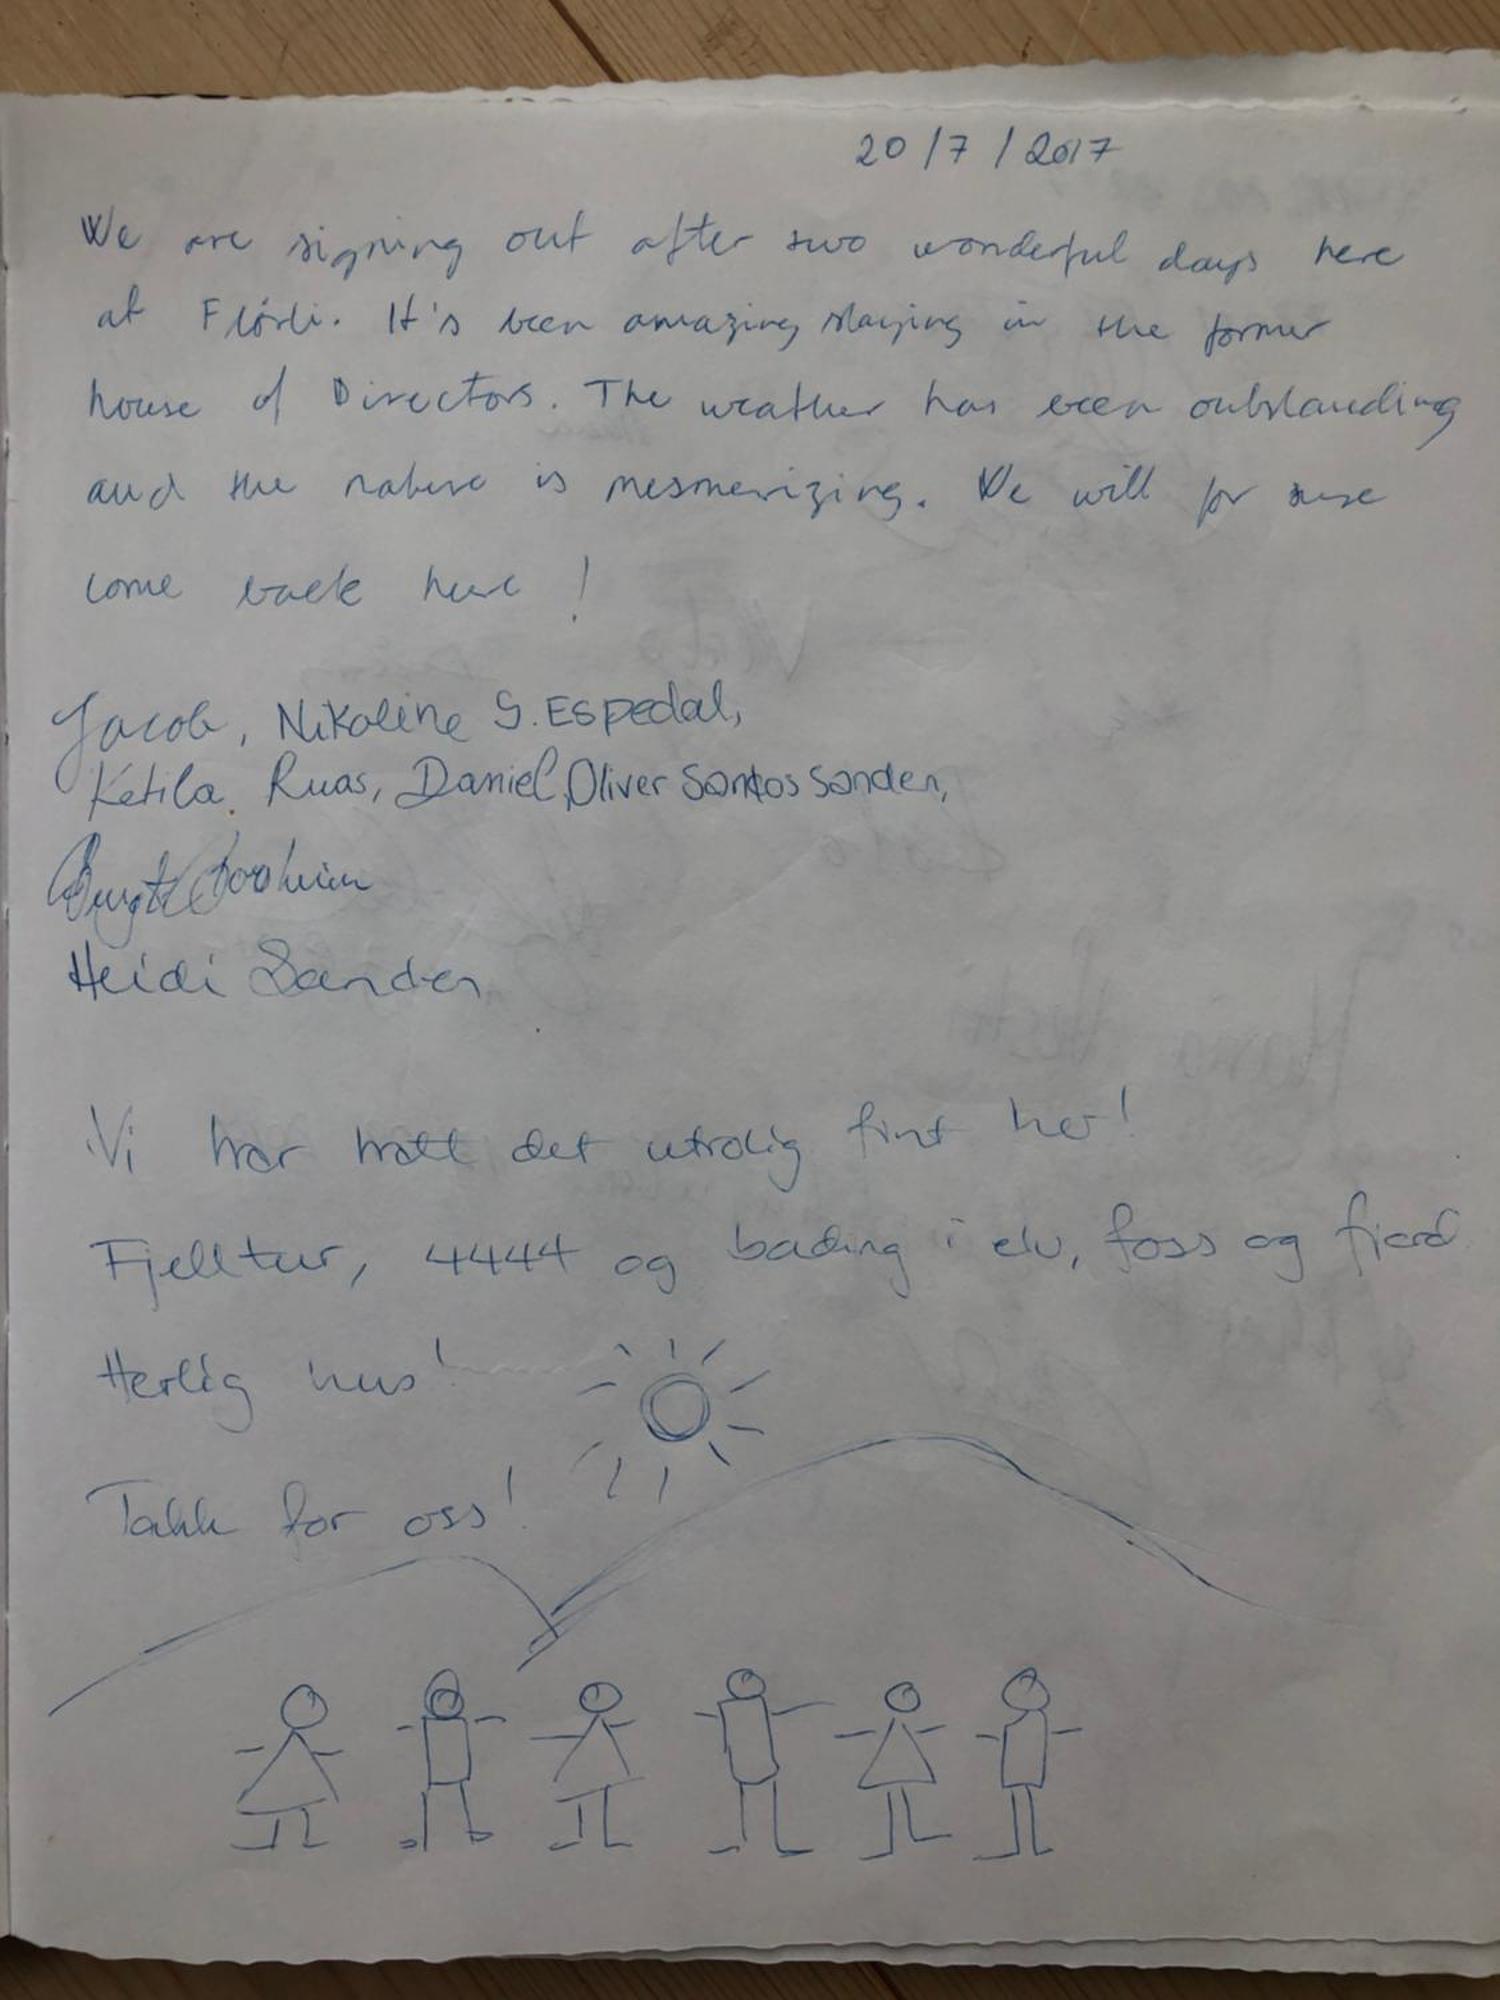 20/7/2017
We are signing out after two wonderful days here
at Flørli. It's been amazing staying in the former
house of Directors. The weather has been outstanding
and the nature is mesmerizing. We will for sure
come back here!
Jacob, Nikoline S. Espedal,
Ketila Ruas, Daniel, Oliver Santos Sanden,
Heidi Sanden
Vi har hatt det utrolig fint her!
Fjelltur, 4444 og bading i elv, foss og fjord
Herlig hus!
Takk for oss!